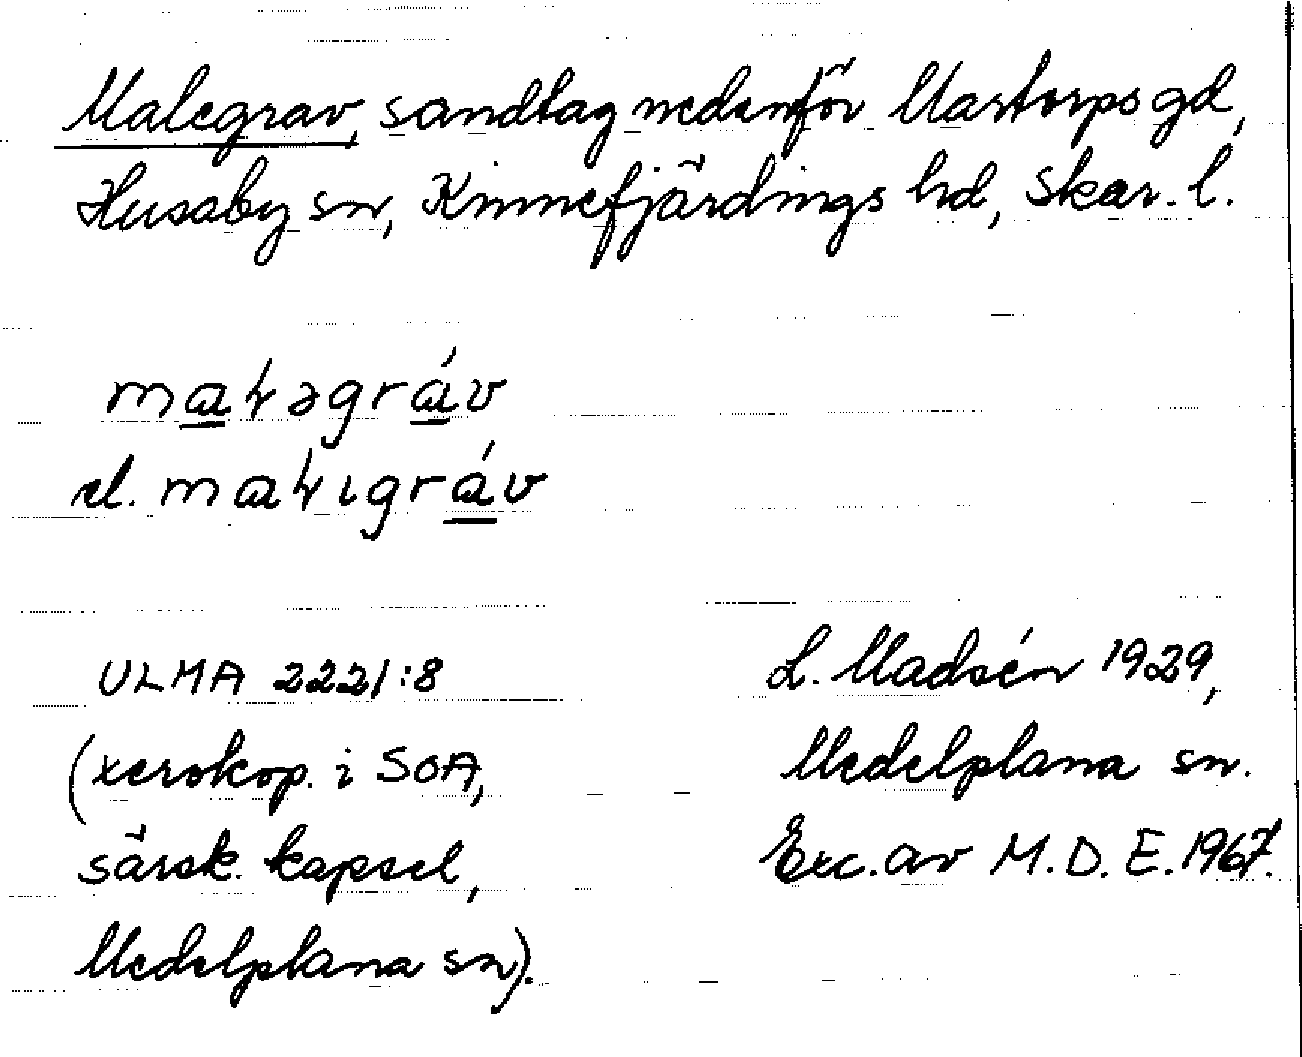 Malegrav, sandtag nedanför Martorps gd,
Husaby sn, Kinnefjärdings hd, Skar. l.
maɫəgráv
el. maɫıgráv
ULMA 2221:8
(xerokop. i SOA,
särsk. kapsel,
Medelplana sn).
L. Madsén 1929,
Medelplana sn.
Exc. av M. D. E. 1967.